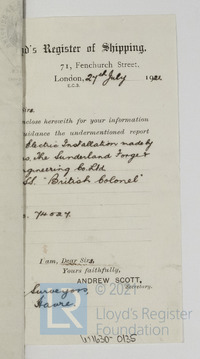 yd's Register of Shipping.
71, Fenchurch Street.
London, 27th July 1921
E.C.3.
Sirs
nclose herewith for your information
uidance the undermentioned report
Electric Installation made by
The Sunderland Forge &
ngineering Co. Ltd
"British Colonel"
74027.
I am, Dear Sirs,
Yours faithfully,
ANDREW SCOTT,
Secretary.
Surveyors
Havre
© 2021
LR
Lloyd's Register
Foundation
W1630-0135